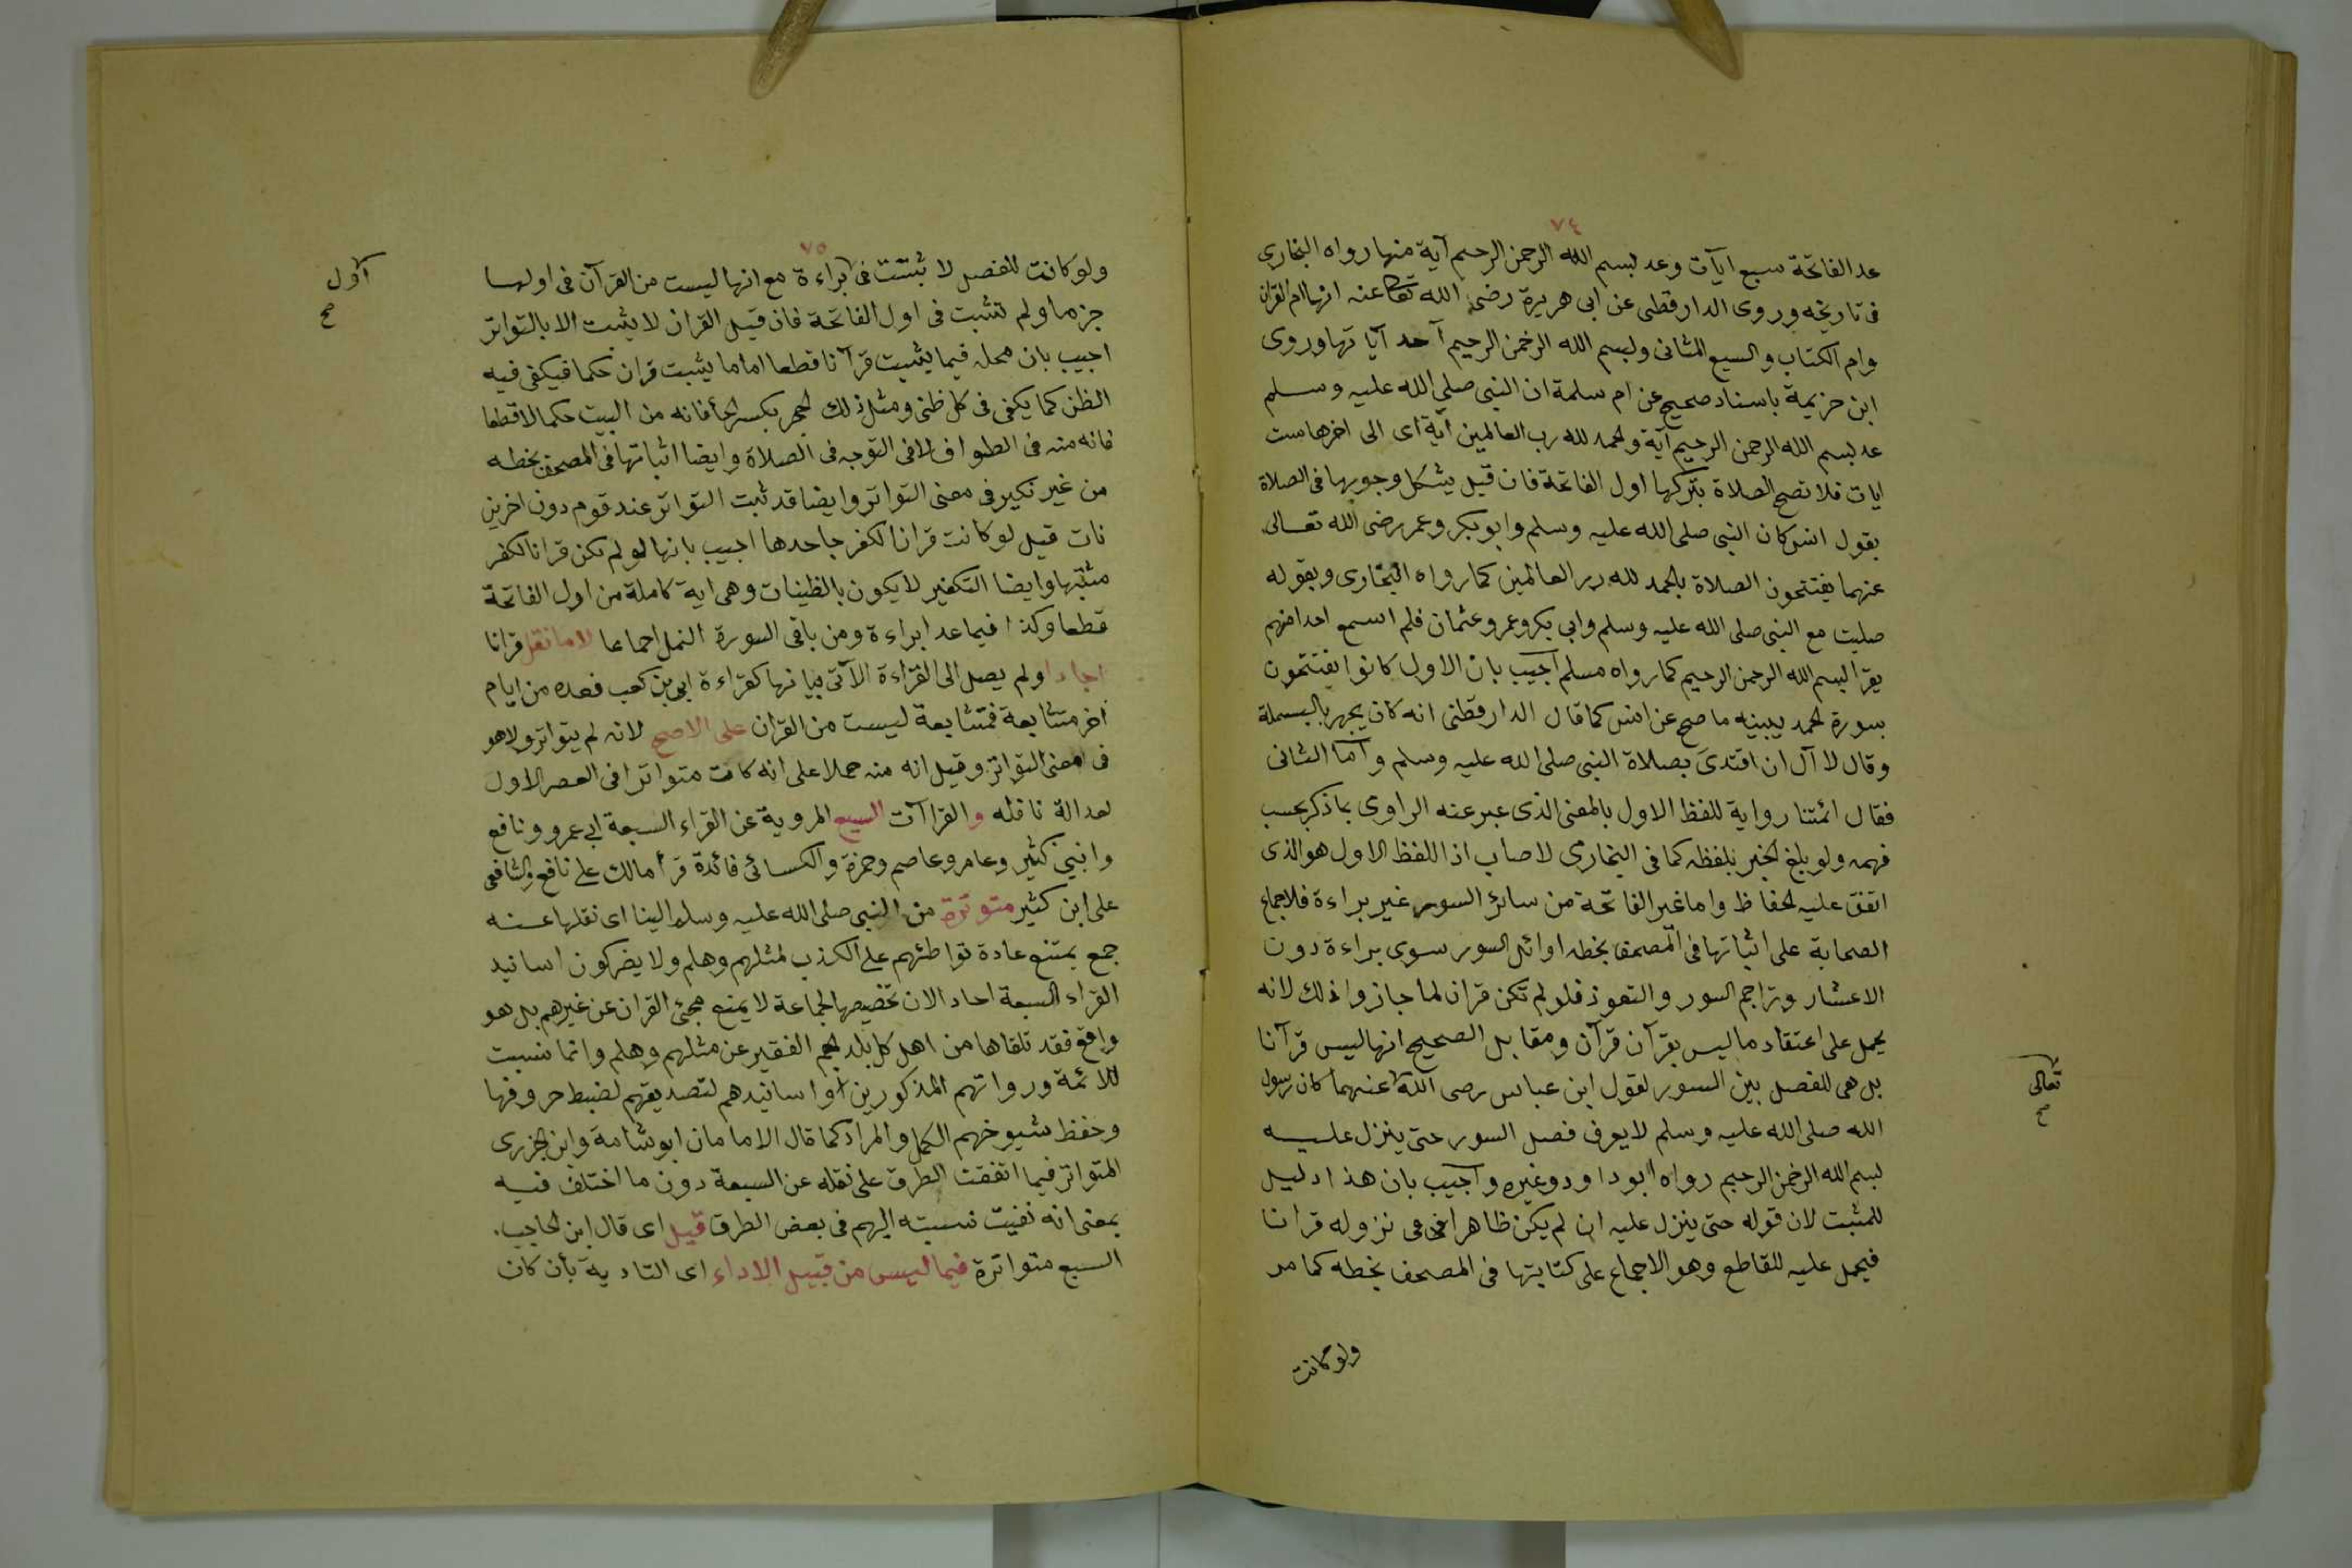 ٧٤
عد الفاتحة سبع ايآت وعد بسم الله الرحمن الرحيم آية منها رواه البخارى
فى تاريخه وروى الدارقطى عن ابى هريرة رضى الله تعالى عنه انها ام القران
وام الكتاب والسبع المثانى وبسم الله الرحمن الرحيم آحد آيا تها وروى
ابن خزيمة باسناد صحيح عن ام سلمة ان النبى صلى الله عليه وسلم
عد بسم الله الرحمن الرحيم آية والحمد لله رب العالمين آية اى الى اخرها ست
ايات فلا تصح الصلاة بتركها اول الفاتحة فان قيل يشكل وجوبها فى الصلاة
بقول انس كان النبى صلى الله عليه وسلم وابو بكر وعمر رضى الله تعالى
عنهما يفتتحون الصلاة بالحمد لله رب العالمين كما رواه البخارى وبقوله
صليت مع النبى صلى الله عليه وسلم وابى بكر وعمر وعثمان فلم اسمع احدا منهم
يقرا بسم الله الرحمن الرحيم كما رواه مسلم اجيب بان الاول كانوا يفتتحون
بسورة الحمد يبينه ما صح عن انس كما قال الدارقطنى انه كان يجهر بالبسملة
وقال لا آل ان اقتدى بصلاة النبى صلى الله عليه وسلم وآما الثانى
فقال ائمتنا رواية للفظ الاول بالمعنى الذى عبر عنه الراوى بما ذكر بحسب
فهمه ولو بلغ الخبر بلفظه كما فى البخارى لاصاب اذ اللفظ الاول هو الذى
اتفق عليه الحفاظ واما غير الفاتحة من سائر السور غير براءة فلاجماع
الصحابة على اثباتها فى المصحف بخطه اوائل السور سوى براءة دون
الاعشار وتراجم السور والتعوذ فلو لم تكن قران لما جازوا ذلك لانه
يحمل على اعتقاد ما ليس بقرآن قرآن ومقابل الصحيح انها ليس قرآنا
بل هى للفصل بين السور لقول ابن عباس رصى الله عنهما كان رسول
تعالى
صح
الله صلى الله عليه وسلم لا يعرف فصل السور حتى ينزل عليه
بسم الله الرحمن الرحيم رواه ابو داود وغيره وآجيب بان هذا دليل
للمثبت لان قوله حتى ينزل عليه ان لم يكن ظاهرا فى نزوله قرانا
فيحمل عليه للقاطع وهو الاجماع على كتابتها فى المصحف بخطه كما مر
ولو كانت
٧٥
ولو كانت للفصل لا ثبتت فى براءة مع انها ليست من القرآن فى اولها
آول
صح
جزما ولم تثبت فى اول الفاتحة فان قيل القران لا يثبت الا بالتواتر
اجيب بان محله فيما يثبت قرآنا قطعا اما ما يثبت قران حكما فيكفى فيه
الظن كما يكفى فى كل ظنى ومثل ذلك الحجر بكسر الحأ فانه من البيت حكما لا قطعا
فانه منه فى الطواف لا فى التوجه فى الصلاة وايضا اثباتها فى المصحف بخطه
من غير نكير فى معنى التواتر وايضا قد ثبت التواتر عند قوم دون اخرين
فان قيل لو كانت قرانا لكفر جاحدها اجيب بانها لو لم تكن قرانا لكفر
مثبتها وايضا التكفير لا يكون بالظنيات وهى اية كاملة من اول الفاتحة
قطعا وكذا فيما عدا براءة ومن باقى السورة النمل اجماعا لا ما نقل قرانا
احادا ولم يصل الى القراءة الآتى بيانها كقراءة ابى بن كعب فعده من ايام
اخر متتابعة فمتتابعة ليست من القران على الاصح لانه لم يتواتر ولا هو
فى معنى التواتر وقيل انه منه حملا على انه كان متواترا فى العصر الاول
لعدالة ناقله والقراآت السبع المروية عن القراء السبعة ابى عمرو ونافع
وابن كثير وعامر وعاصم وحمزة والكسائى فائدة قرأ مالك على نافع والشافعى
على ابن كثير متوترة من النبى صلى الله عليه وسلم الينا اى نقلها عنه
جمع يمتنع عادة تواطئهم على الكذب لمثلهم وهلم ولا يضر كون اسانيد
القراء السبعة احاد الان تخصيصها لجماعة لا يمنع مجئ القران عن غيرهم بل هو
واقع فقد تلقاها من اهل كل بلد الجم الفقير عن مثلهم وهلم وانما نسبت
للائمة ورواتهم المذكورين اواسانيدهم لتصديقهم لضبط حروفها
وحفظ شيوخهم الكمل والمراد كما قال الامامان ابو شامة وابن الجزرى
المتواتر فيما اتفقت الطرق على نقله عن السبعة دون ما اختلف فيه
بمعنى انه نفيت نسبته اليهم فى بعض الطرق قيل اى قال ابن الحاجب.
السبع متواترة فيما ليس من قبيل الاداء اى التادية بأن كان